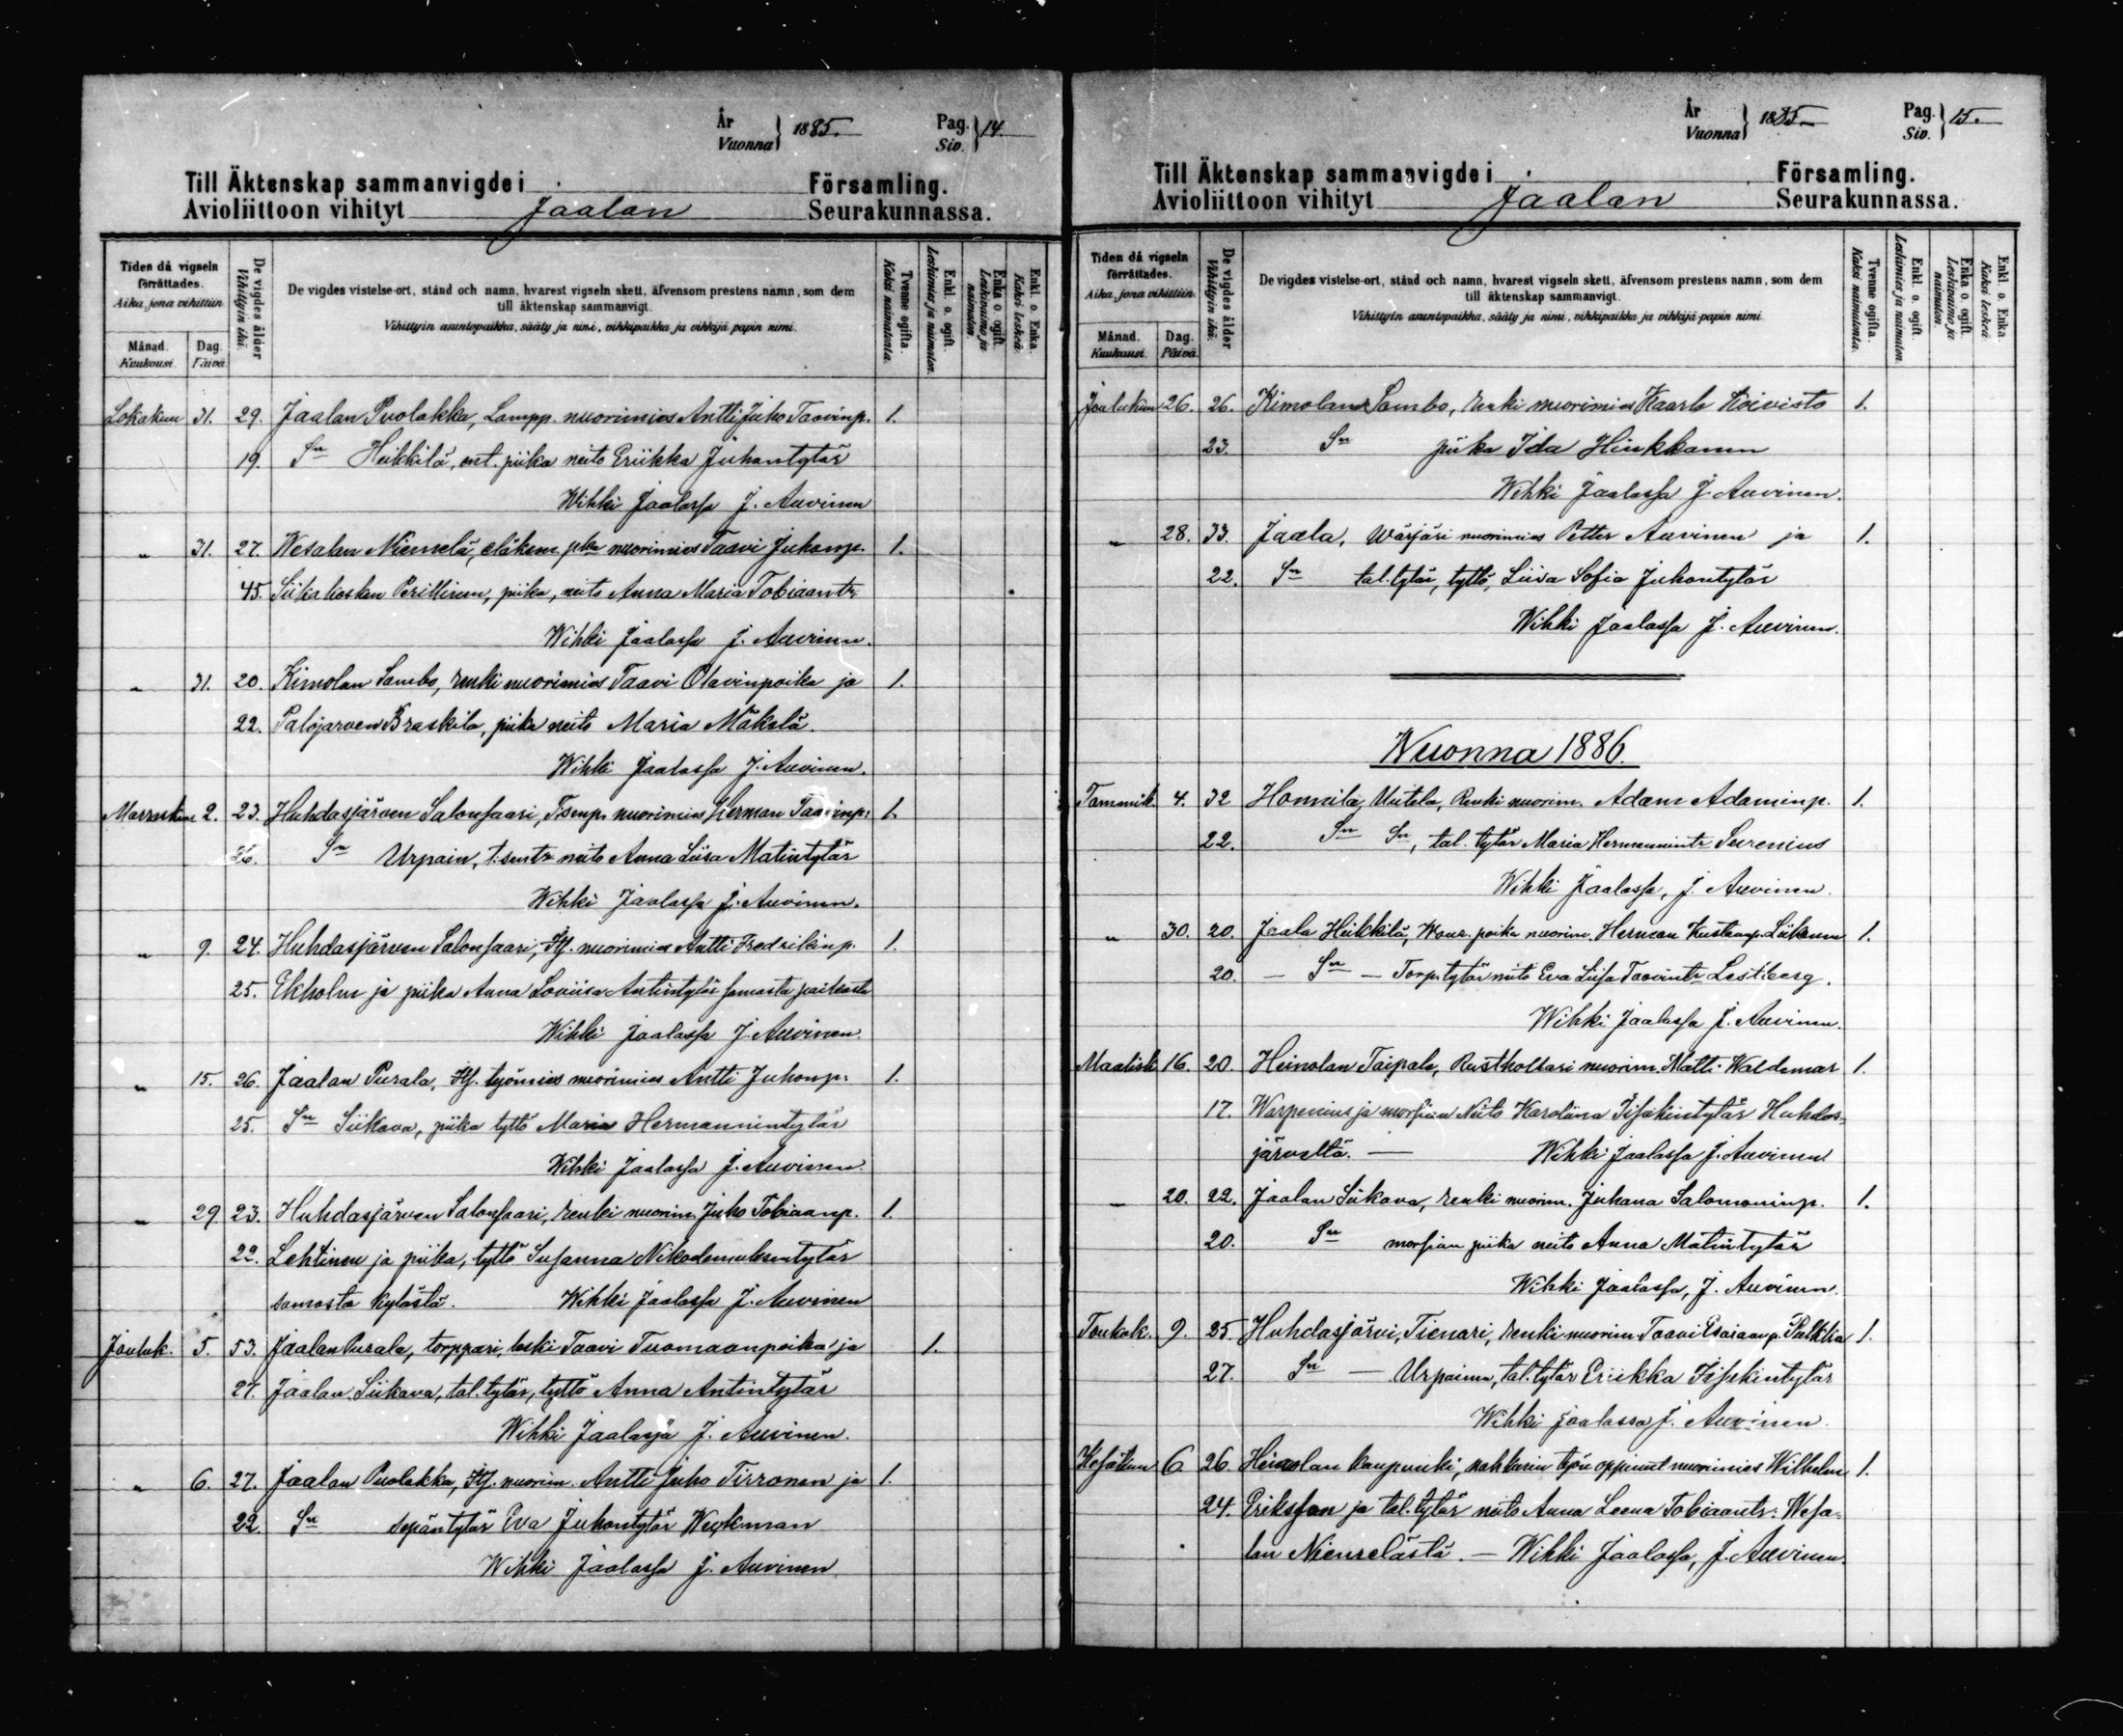 År
Vuonna } 1885.
Pag.
Siv. } 14
Till Äktenskap sammanvigde i Församling.
Avioliittoon vihityt Jaalan Seurakunnassa.
Tiden då vigseln förrättades.
Aika, jona vihittiin
Månad.
Kuukausi.
Dag.
Päivä
De vigdes ålder
Vihittyin ikä.
De vigdes vistelse-ort, stånd och namn, hvarest vigseln skett, äfvensom prestens namn, som dem
till äktenskap sammanvigt.
Vihittyin asuntopaikka, sääty ja nimi, vihkipaikka ja vihkijä papin nimi.
Tvenne ogifta.
Kaksi naimatonta.
Enkl. o. ogift.
Leskimies ja naimaton.
Enka o. ogift.
Leskivaimo ja naimaton.
Enkl. o. Enka.
Kaksi leskeä.
Lokakuu 31. 29. Jaalan Puolakka, Lampp. nuorimies Antti Juho Taavinp. 1.
19. Sn Heikkilä, ent. piika neito Eriikka Juhontytär
Wihki Jaalassa J. Auvinen
" 31. 27. Wesalan Niemelä, eläken. pka nuorimies Taavi Juhonp. 1.
45. Siikakosken Perillinen, piika, neito Anna Maria Tobiaantr
Wihki Jaalassa J. Auvinen.
" 31. 20. Kimolan Sambo, renki nuorimies Taavi Olavinpoika ja 1.
22. Palojarven Braskila, piika neito Maria Mäkelä.
Wihki Jaalassa J. Auvinen.
Marraskuu 2. 23. Huhdasjärven Salonsaari, Tsenp. nuorimies Herman Taavinp. 1.
26. Sn Urpain, t:sentr neito Anna Liisa Matintytär
Wihki Jaalassa J. Auvinen.
" 9. 24. Huhdasjärven Salonsaari, Itf. nuorimies Antti Fredrikinp. 1.
25. Ekholm ja piika Anna Loviisa Antintytär samasta paikasta
Wihki Jaalassa J. Auvinen.
" 15. 26. Jaalan Purala, Itf. työmies nuorimies Antti Juhonp. 1.
25. Sn Siikava, piika tyttö Maria Hermannintytär
Wihki Jaalassa J. Auvinen.
" 29 23. Huhdasjärven Salonsaari, renki nuorim. Juho Tobiaanp. 1.
22. Lehtinen ja piika, tyttö Susanna Nikodemuksentytär
samasta kylästä. Wihki Jaalassa J. Auvinen
Jouluk. 5. 53. Jaalan Purala, torppari, leski Taavi Tuomaanpoika ja 1.
27. Jaalan Siikava, tal. tytär, tyttö Anna Antintytär
Wihki Jaalassa J. Auvinen.
" 6. 27. Jaalan Puolakka, Itf. nuorim. Antti Juho Tirronen ja 1.
22. Sn sepäntytär Eva Juhontytär Weckman
Wihki Jaalassa J. Auvinen
År
Vuonna } 1885
Pag.
Siv. } 15.
Till Äktenskap sammanvigde i Församling.
Avioliittoon vihityt Jaalan Seurakunnassa.
Tiden då vigseln förrättades.
Aika, jona vihittiin.
Månad.
Kuukausi.
Dag.
Päivä
De vigdes ålder
Vihittyin ikä.
De vigdes vistelse-ort, stånd och namn, hvarest vigseln skett, äfvensom prestens namn, som dem
till äktenskap sammanvigt.
Vihittyin asuntopaikka, sääty ja nimi, vihkipaikka ja vihkijä-papin nimi
Tvenne ogifta.
Kaksi naimatonta.
Enkl. o. ogift.
Leskimies ja naimaton.
Enka o. ogift.
Leskivaimo ja naimaton.
Enkl. o. Enka.
Kaksi leskeä
Joulukuu 26. 26. Kimolan Sambo, renki nuorimies Kaarle Koivisto 1.
23. Sn piika Ida Hinkkanen
Wihki Jaalassa J. Auvinen.
" 28. 33. Jaala, Wärjäri nuorimies Petter Auvinen ja 1.
22. Sn tal. tytär, tyttö, Liisa Sofia Juhontytär
Wihki Jaalassa J. Auvinen.
Wuonna 1886.
Tammik. 4. 32 Hommila, Uutela, Renki nuorim. Adam Adaminp. 1.
22. Sn Sn, tal. tytär Maria Hermannintr Seurenius
Wihki Jaalassa, J. Auvinen.
" 30. 20. Jaala Heikkilä, Wour. poika nuorim. Herman Kustaanp. Liikanen 1.
20. — Sn — Torp. tytär neito Eva Liisa Taavintr Lestberg.
Wihki Jaalassa J. Auvinen.
Maalisk. 16. 20. Heinolan Taipale, Rusthollari nuorim. Matti Waldemar 1.
17. Warpenius ja morsian Neito Karoliina Iisakintytär Huhdas-
järveltä. — Wihki Jaalassa J. Auvinen
" 20. 22. Jaalan Siikava, renki nuorim. Juhana Salomoninp. 1.
20. Sn morsian piika neito Anna Matintytär
Wihki Jaalassa, J. Auvinen.
Toukok. 9. 25. Huhdasjärvi, Tienari, renki nuorim. Taavi Esaiaanp. Pulkkia 1.
27. Sn — Urpainen, tal. tytär Eriikka Iisakintytär
Wihki Jaalassa J. Auvinen.
Kesäkuu 6 26. Heinolan kaupunki, nahkurin työn oppinut nuorimies Wilhelm 1.
24. Eriksson ja tal. tytär neito Anna Leena Tobiaantr. Wesa-
lan Niemelästä. — Wihki Jaalassa, J. Auvinen.